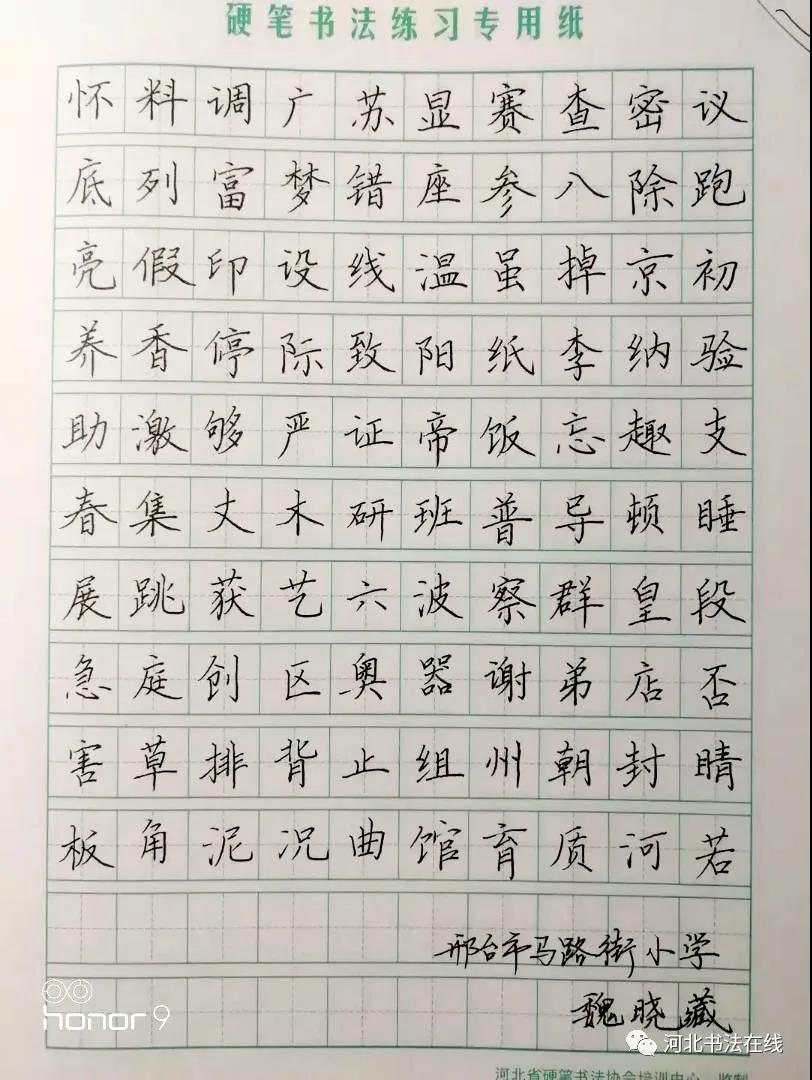 硬笔书法练习专用纸
怀料调广苏显赛查密议
底列富梦错座参八除跑
亮假印设线温虽掉京初
养香停际致阳纸李纳验
助激够严证帝饭忘趣支
春集丈木研班普导顿睡
展跳获艺六波察群皇段
急庭创区奥器谢弟店否
害草排背止组州朝封睛
板角泥况曲馆育质河若
邢台市马路街小学
魏晓藏
honor 9
河北书法在线
河北省硬笔书法协会培训中心 监制